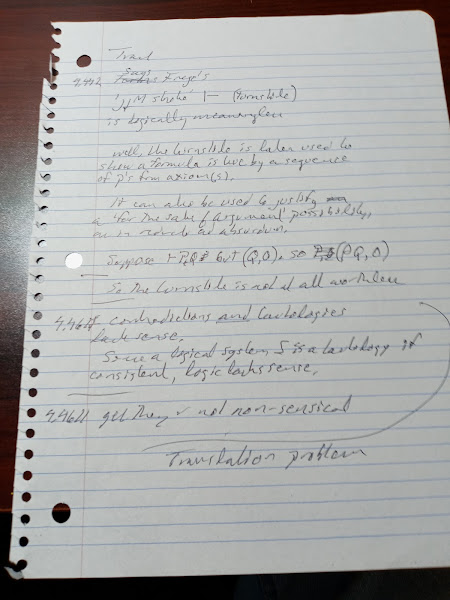 Tract
Says
4.442 Frege's
'Jgm stroke' ⊢ (turnstile)
is logically meaningless
well, the turnstile is later used to
show a formula is true by a sequence
of P's from axiom(s).
It can also be used to justify
a for the sake of argument possibility,
as in reductio ad absurdum.
Suppose ⊢ P, Q but (Q, O), so (PQ, O)
So the turnstile is not at all worthless
4.461 contradictions and tautologies
lack sense.
Since a logical system S is a tautology if
consistent, logic lacks sense.
4.4611 yet they r not non-sensical
Translation problem